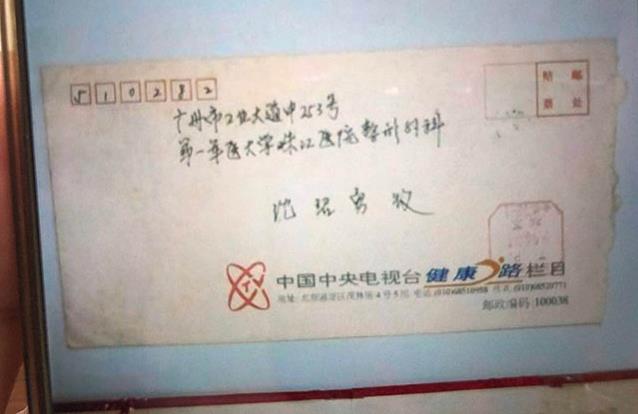 510282
贴邮
票处
广州市工业大道中253号
第一军医大学珠江医院整形外科
收
中国中央电视台健康之路栏目
邮政编码 100038